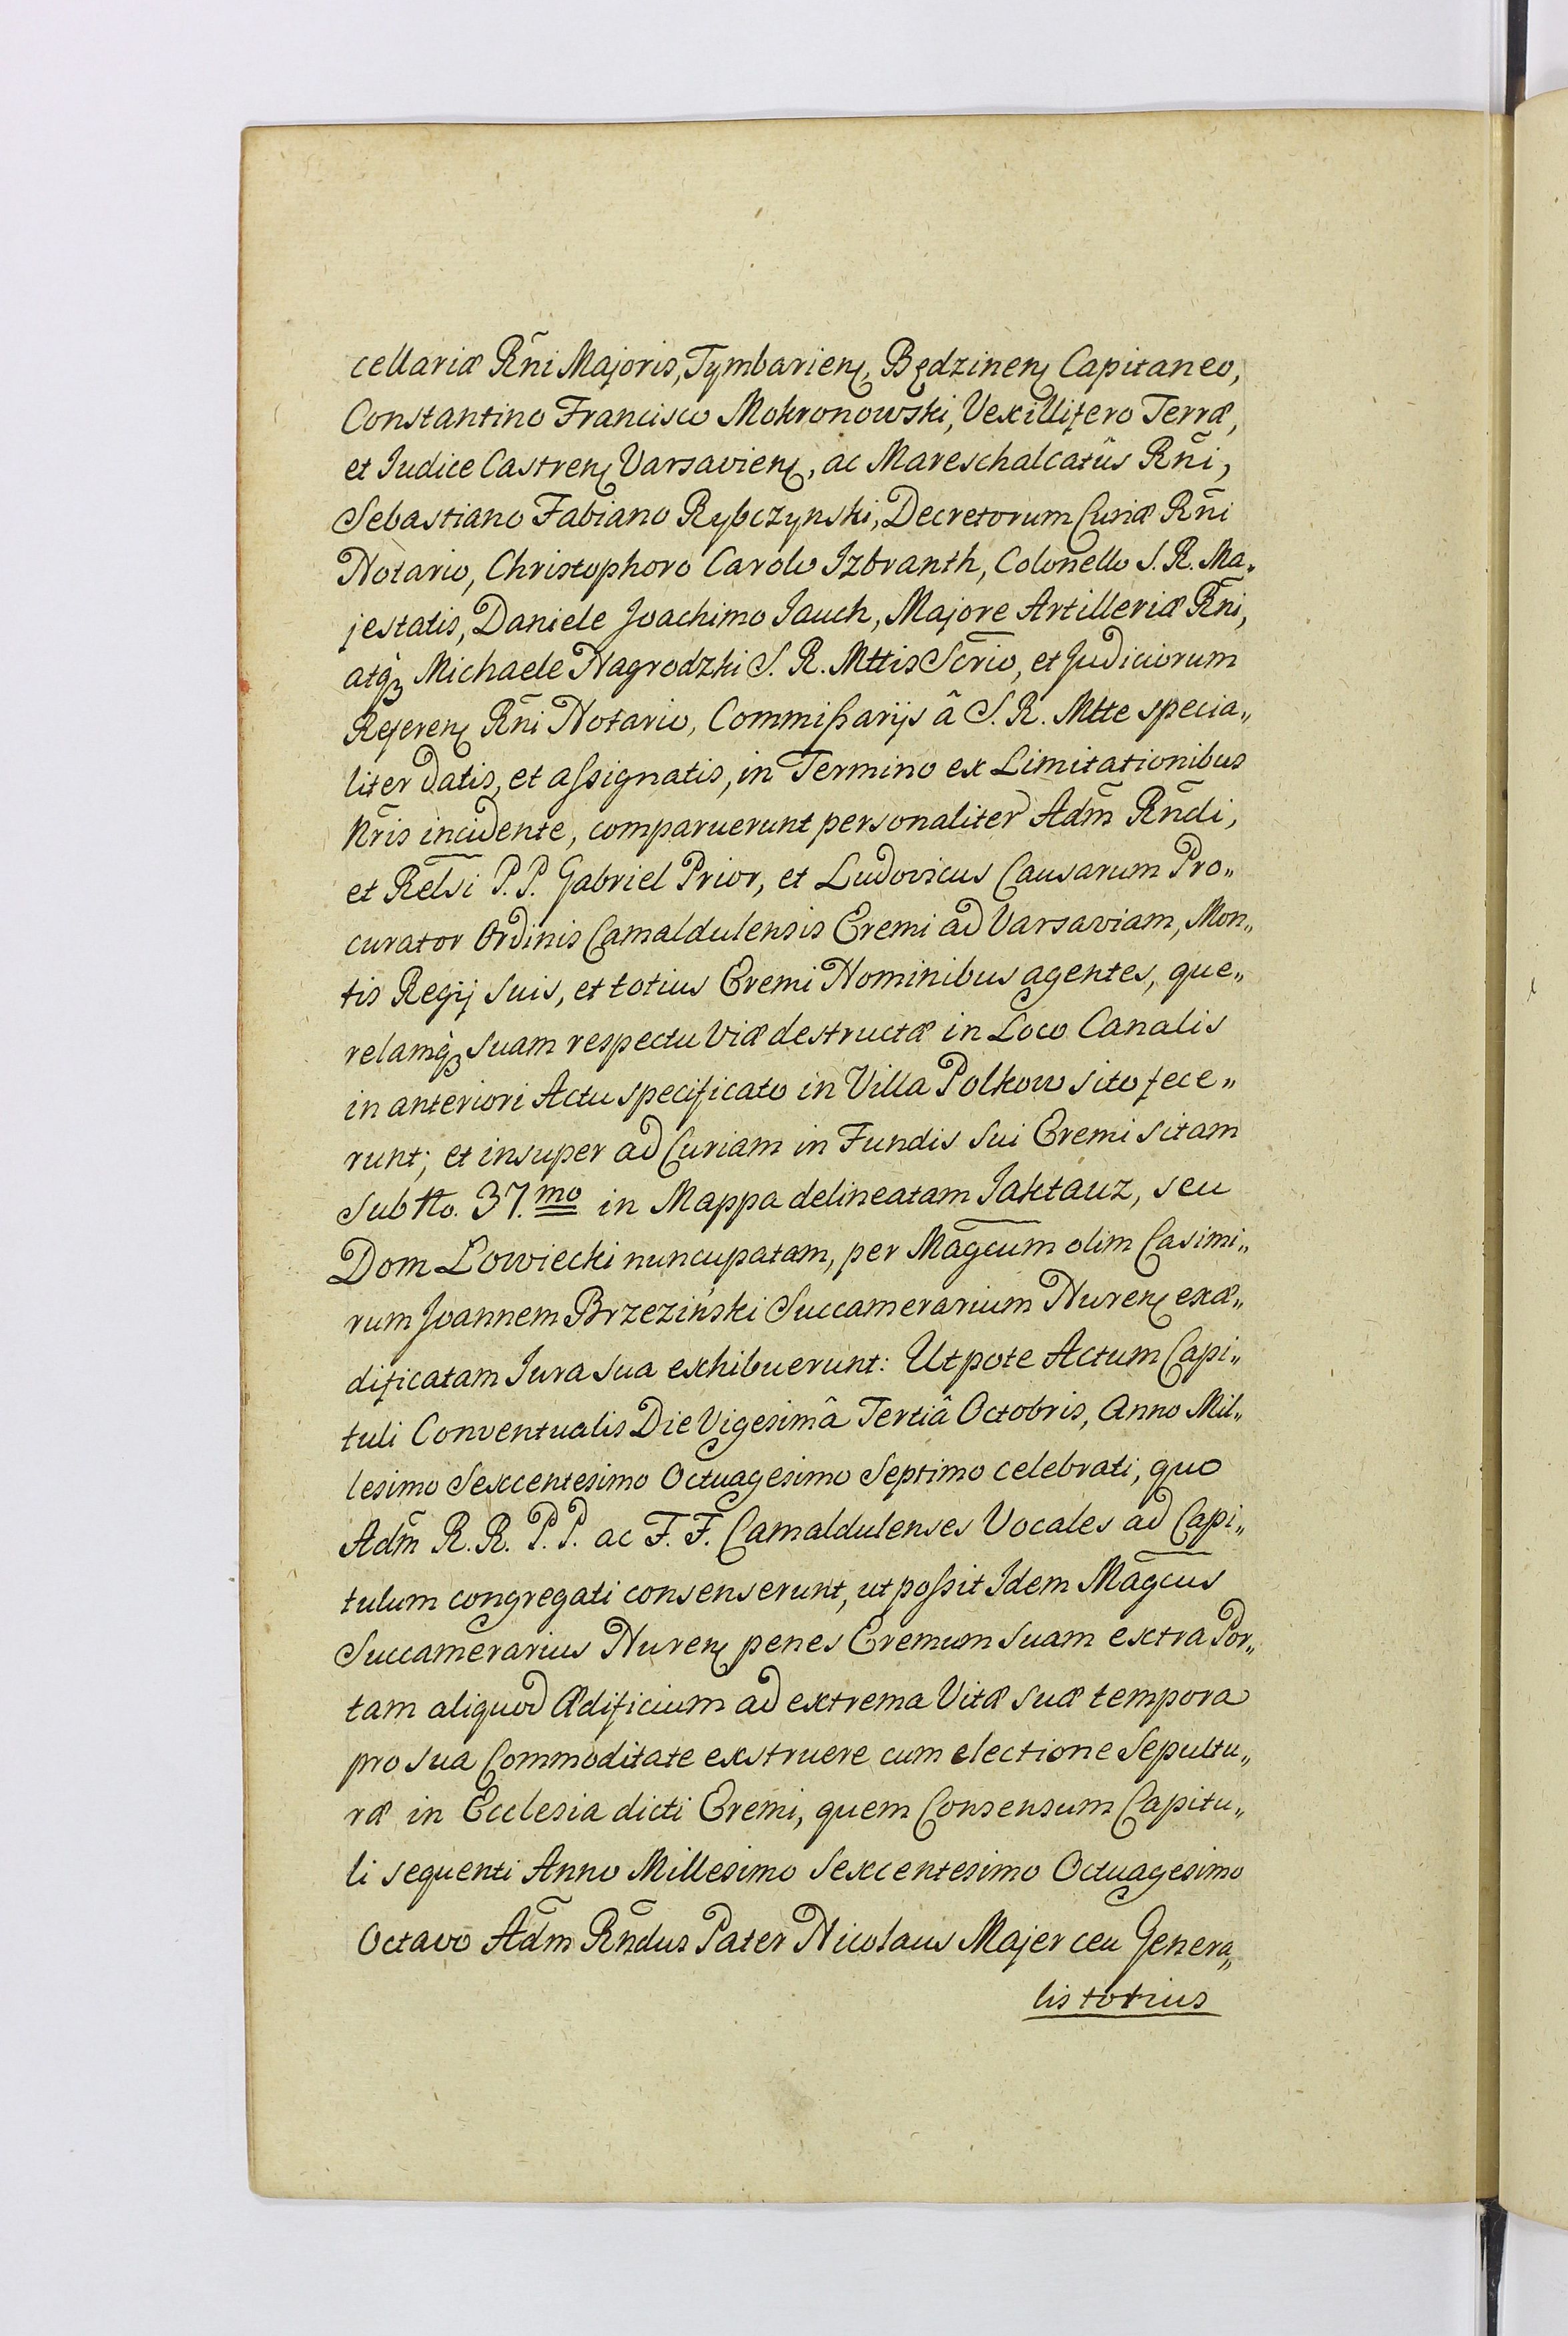 cellariæ Rñi Majoris, Tymbarien̨, Będzinen̨ Capitaneo,
Constantino Francisco Mokronowski, Vexillifero Terræ,
et Judice Castren̨ Varsavien̨, ac Mareschalcatûs Rñi,
Sebastiano Fabiano Rybczynski, Decretorum Curiæ Rñi
Notario, Christophoro Carolo Izbranth, Colonello S. R. Ma„
jestatis, Daniele Joachimo Jauch, Majore Artilleriæ Rñi,
atqꝫ Michaele Nagrodzki S. R. Mttis Scrio, et Judiciorum
Referen̨ Rñi Notario, Commißarijs â S. R. Mtte specia„
liter datis, et aſsignatis, in Termino ex Limitationibus
Nr̃is incidente, comparuerunt personaliter Adm̃ Rñdi,
et Relsi P. P. Gabriel Prior, et Ludovicus Causarum Pro„
curator Ordinis Camaldulensis Eremi ad Varsaviam, Mon„
tis Regij suis, et totius Eremi Nominibus agentes, que„
relamqꝫ suam respectu Viæ destructæ in Loco Canalis
in anteriori Actu specificato in Villa Polkow sito fece„
runt; et insuper ad Curiam in Fundis sui Eremi sitam
sub No. 37.mo in Mappa delineatam Jaktauz, seu
Dom Łowiecki nuncupatam, per Magcum olim Casimi„
rum Joannem Brzeziński Succamerarium Nuren̨ exæ„
dificatam Jura sua exhibuerunt: Utpote Actum Capi„
tuli Conventualis Die Vigesimâ Tertiâ Octobris, Anno Mil„
lesimo Sexcentesimo Octuagesimo Septimo celebrati, quo
Adm̃ R. R. P. P. ac F. F. Camaldulenses Vocales ad Capi„
tulum congregati consenserunt, ut poſsit Idem Magcus
Succamerarius Nuren̨ penes Eremum suam extra Por„
tam aliquod Ædificium ad extrema Vitæ suæ tempora
pro sua Commoditate exstruere cum electione Sepultu„
ræ in Ecclesia dicti Eremi, quem Consensum Capitu„
li sequenti Anno Millesimo Sexcentesimo Octuagesimo
Octavo Adm̃ Rñdus Pater Nicolaus Majer ceu Genera„
lis totius